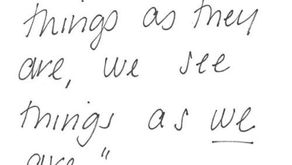 things as they
are, we see
things as we
are."